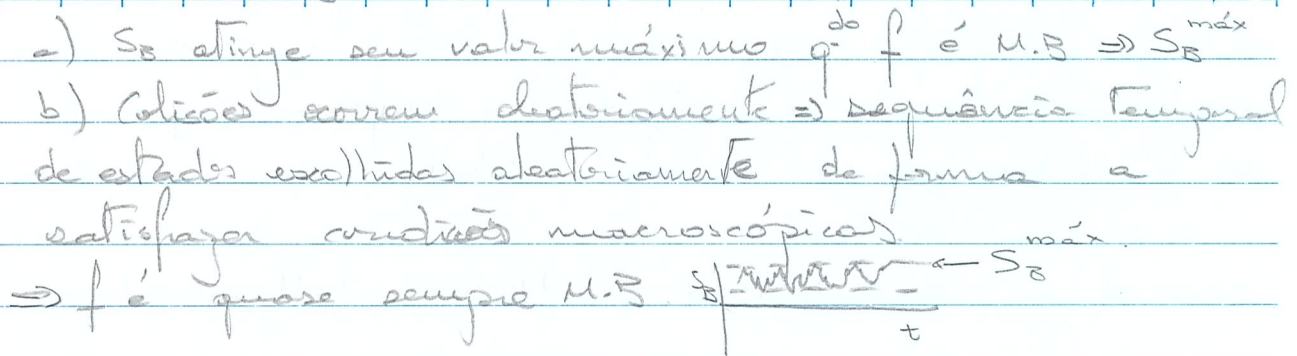 a) S_B atinge seu valor máximo q^do f é M.B ⇒ S_B^máx
b) Colisões ocorrem aleatoriamente ⇒ sequência temporal
de estados escolhidos aleatoriamente de forma a
satisfazer condições macroscópicas.
⇒ f é quase sempre M.B S_B ← S_B^máx.
t